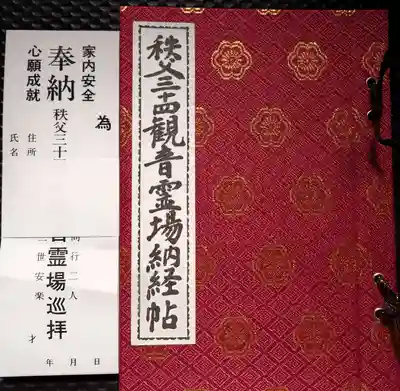 秩父三十四観音霊場納経帖
為
家内安全
奉納 秩父三十
心願成就
住所
氏名
同行二人
音霊場巡拝
二世安楽
才
年 月 日